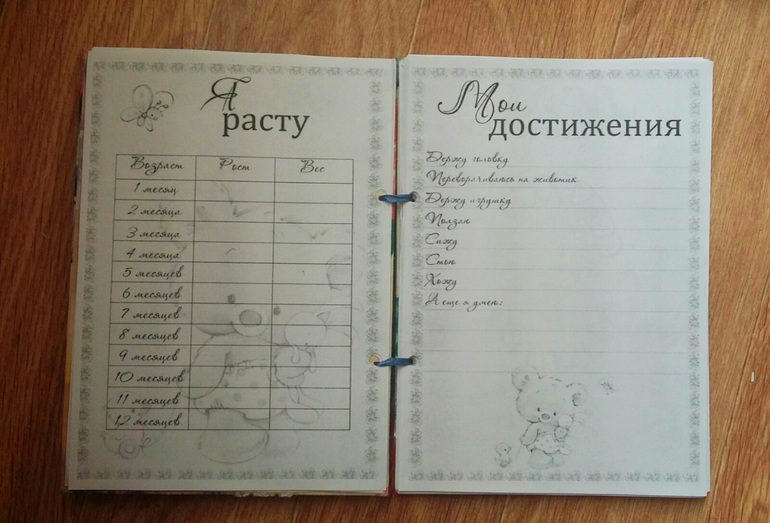 Я
расту
Возраст Рост Вес
1 месяц
2 месяца
3 месяца
4 месяца
5 месяцев
6 месяцев
7 месяцев
8 месяцев
9 месяцев
10 месяцев
11 месяцев
12 месяцев
Мои
достижения
Держу головку
Переворачиваюсь на животик
Держу игрушку
Ползаю
Сижу
Стою
Хожу
А еще я умею: